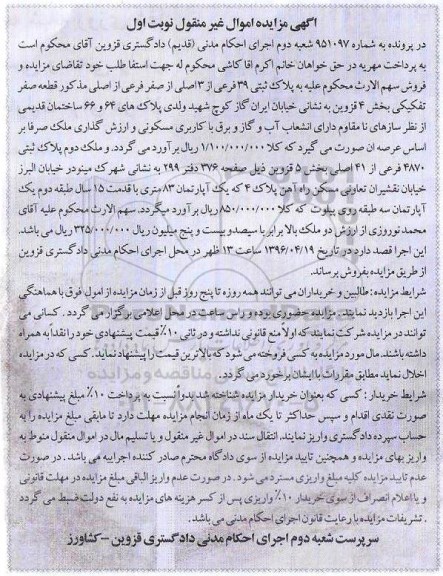 آگهی مزایده اموال غیر منقول نوبت اول
در پرونده به شماره ۹۵۱۰۹۷ شعبه دوم اجرای احکام مدنی (قدیم) دادگستری قزوین آقای محکوم است
به پرداخت مهریه در حق خواهان خانم اکرم اقا کاشی محکوم له جهت استفا طلب خود تقاضای مزایده و
فروش سهم الارث محکوم علیه به پلاک ثبتی ۳۹ فرعی از ۱۳ اصلی از صفر فرعی از اصلی مذکور قطعه صفر
تفکیکی بخش ۴ قزوین به نشانی خیابان ایران گاز کوچ شهید ولدی پلاک های ۶۴ و ۶۶ ساختمان قدیمی
از نظر سازهای نا مقاوم دارای انشعاب آب و گاز و برق با کاربری مسکونی و ارزش گذاری ملک صرفا بر
اساس عرصه ان صورت می گیرد که کلا ۱/۱۰۰/۰۰۰/۰۰۰ ریال برآورد می گردد. و ملک دوم پلاک ثبتی
۴۸۷۰ فرعی از ۴۱ اصلی بخش ۵ قزوین ذیل صفحه ۳۷۶ دفتر ۲۹۹ به نشانی شهرک مینودر خیابان البرز
خیابان نقشیران تعاونی مسکن راه آهن پلاک ۴ که یک آپارتمان ۸۳ متری با قدمت ۱۵ سال طبقه دوم یک
آپارتمان سه طبقه روی پیلوت که کلا ۸۵۰/۰۰۰/۰۰۰ ریال برآورد میگردد. سهم الارث محکوم علیه آقای
محمد نوروزی از ارزش دو ملک بالا برابر با سیصد و بیست و پنج میلیون ریال ۳۲۵/۰۰۰/۰۰۰ ریال می باشد.
این اجرا قصد دارد در تاریخ ۱۳۹۶/۰۴/۱۹ ساعت ۱۳ ظهر در محل اجرای احکام مدنی دادگستری قزوین
از طریق مزایده بفروش برساند.
شرایط مزایده: طالبین و خریداران می توانند همه روزه تا پنج روز قبل از زمان مزایده از اموال فوق با هماهنگی
این اجرا بازدید نمایند. مزایده حضوری بوده و راس ساعت در محل اعلامی برگزار می گردد. کسانی می
توانند در مزایده شرکت نمایند که اولاً منع قانونی نداشته و در ثانی ۱۰٪ قیمت پیشنهادی خود را نقداً به همراه
داشته باشند. مال مورد مزایده به کسی فروخته می شود که بالاترین قیمت را پیشنهاد نماید. کسی که در مزایده
اخلال نماید مطابق مقررات با ایشان برخورد می گردد.
شرایط خریدار: کسی که بعنوان خریدار مزایده شناخته شد بدواً نسبت به پرداخت ۱۰٪ مبلغ پیشنهادی به
صورت نقدی اقدام و سپس حداکثر تا یک ماه از زمان انجام مزایده مهلت دارد تا مابقی مبلغ مزایده را به
حساب سپرده دادگستری واریز نمایند. انتقال سند در اموال غیر منقول و یا تسلیم مال در اموال منقول منوط به
واریز بهای مزایده و همچنین تایید مزایده از سوی دادگاه محترم صادر کننده اجراییه می باشد. در صورت
عدم تایید مزایده کلیه مبلغ واریزی مسترد می شود. در صورت عدم واریز الباقی مبلغ مزایده در مهلت قانونی
و یا اعلام انصراف از سوی خریدار ۱۰٪ واریزی پس از کسر هزینه های مزایده به نفع دولت ضبط می گردد
. تشریفات مزایده با رعایت قانون اجرای احکام مدنی می باشد.
سرپرست شعبه دوم اجرای احکام مدنی دادگستری قزوین – کشاورز